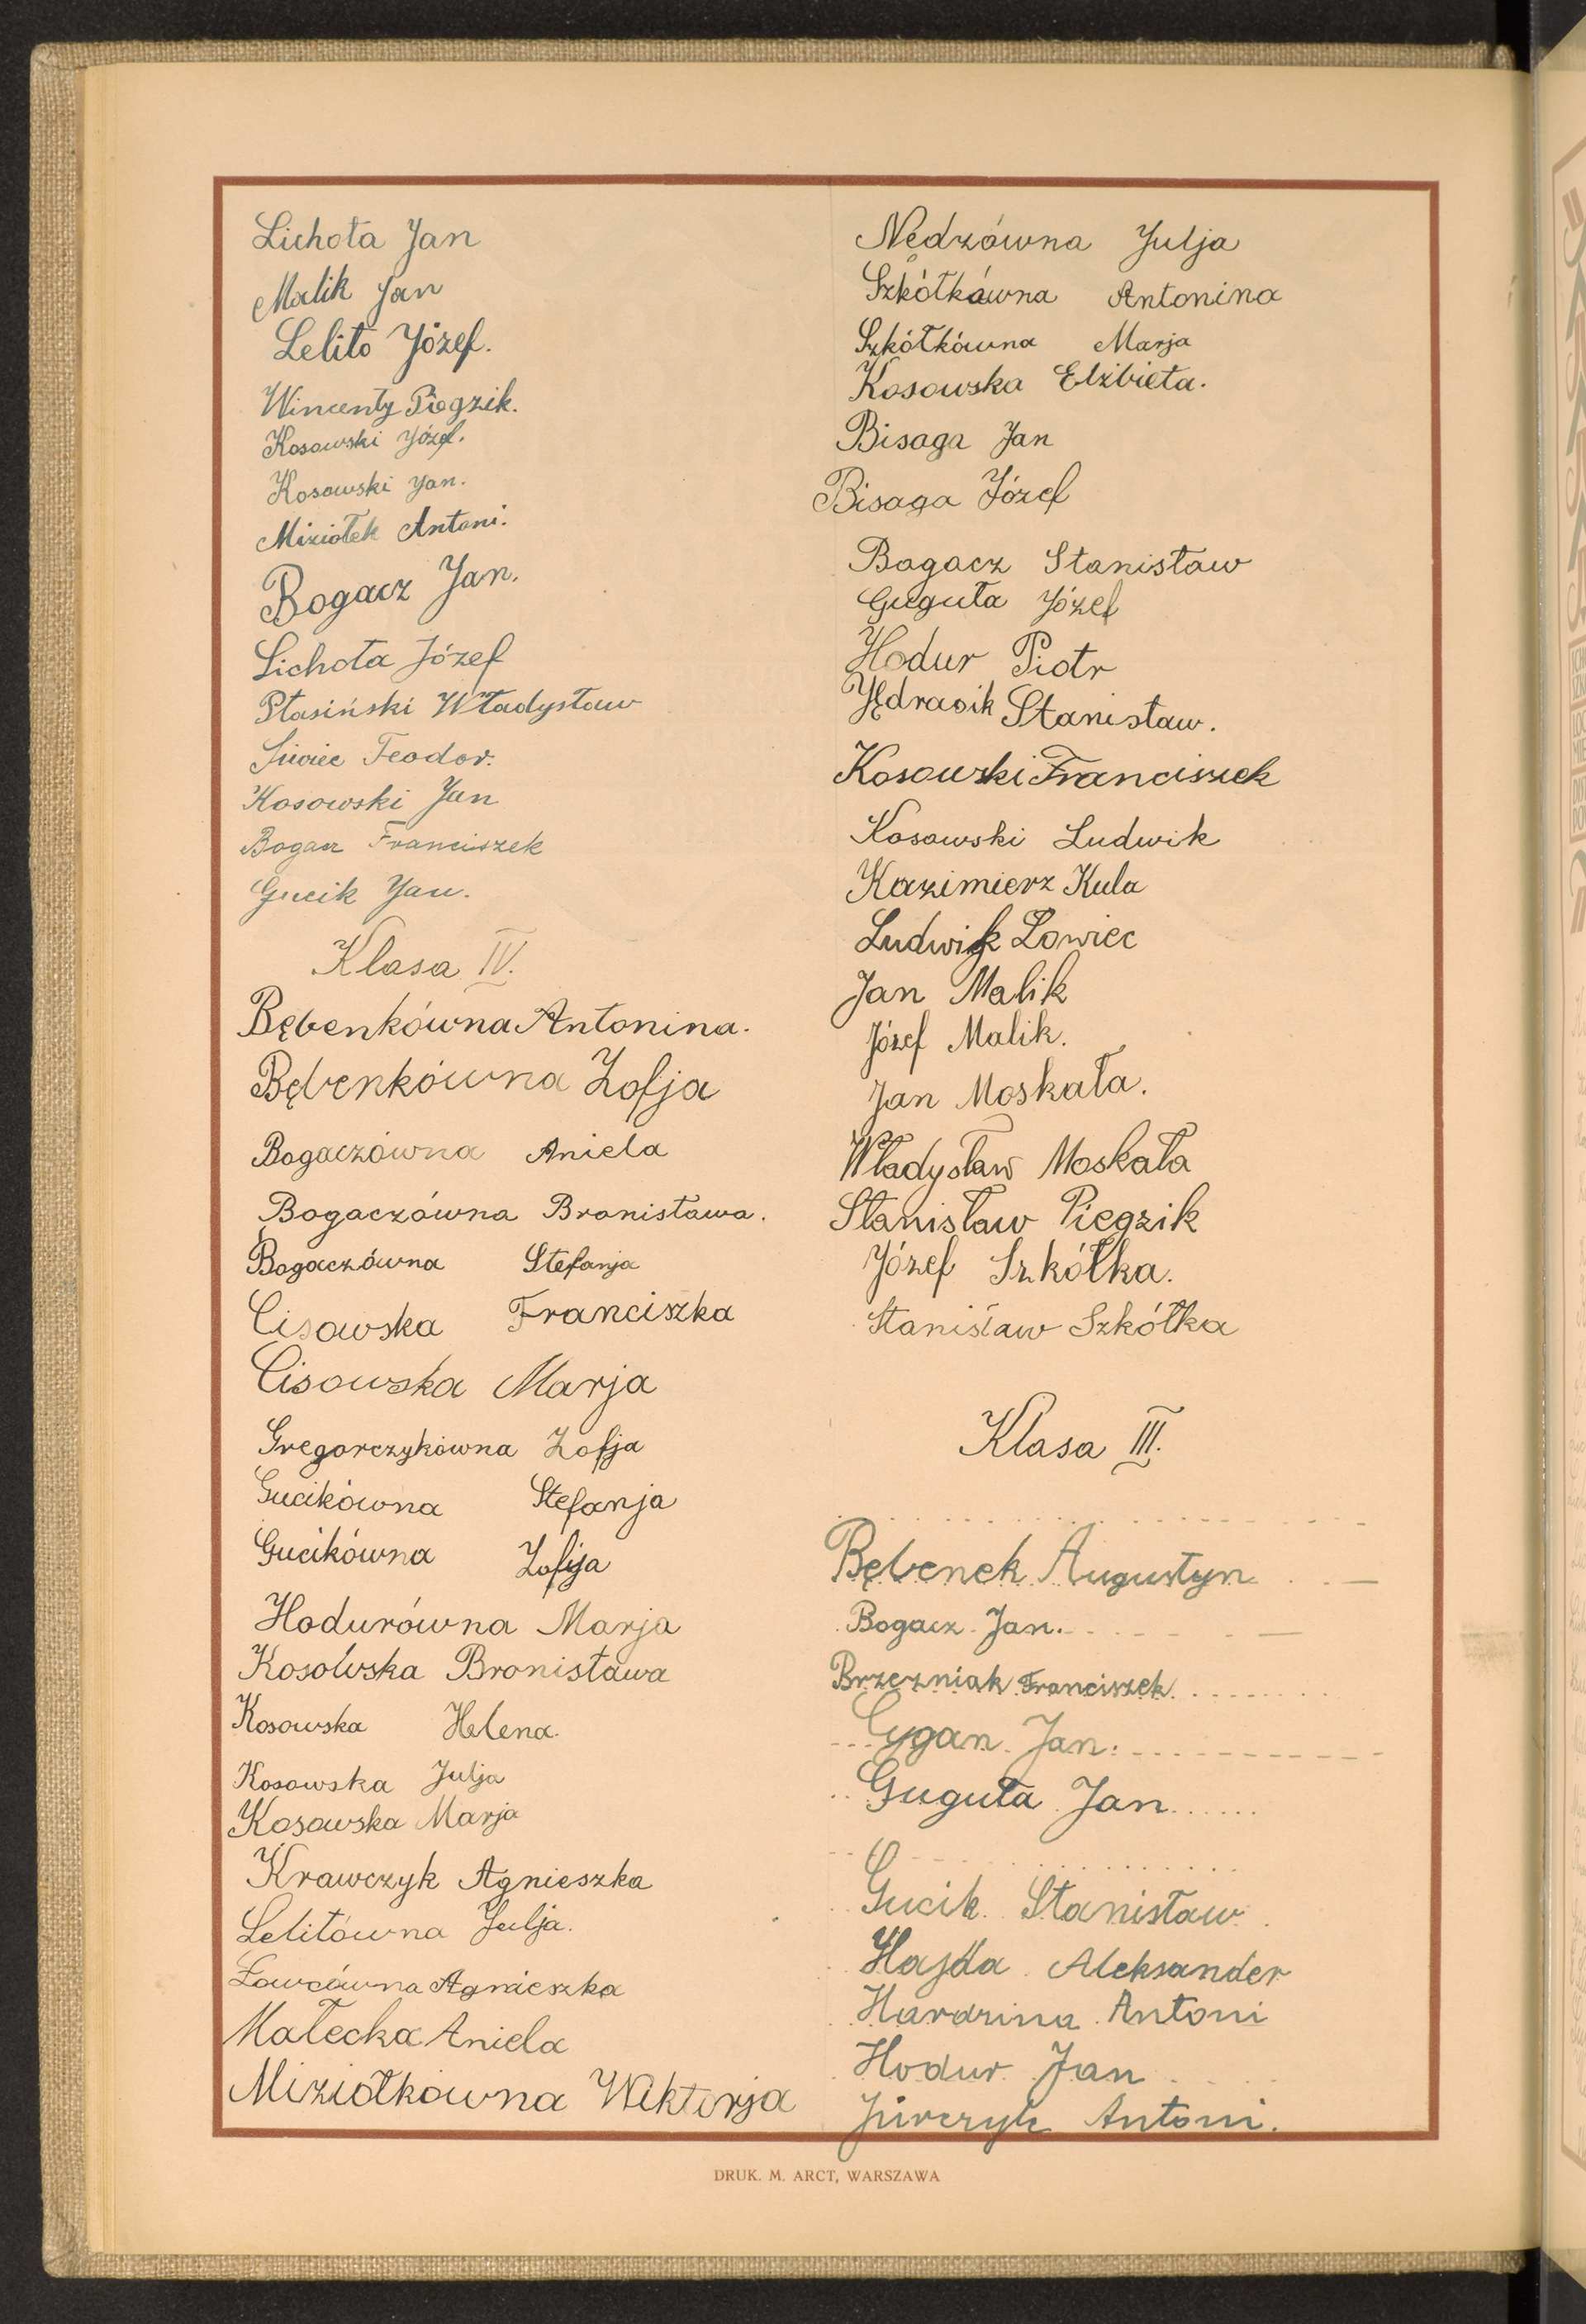 Lichota Jan
Malik Jan
Lelito Józef.
Wincenty Piegzik.
Kosowski Józef.
Kosowski Jan.
Miziołek Antoni.
Bogacz Jan.
Lichota Józef
Ptasiński Władysław
Siwiec Teodor.
Kosowski Jan
Bogacz Franciszek
Gucik Jan.
Klasa IV.
Bębenkówna Antonina.
Bębenkówna Zofja
Bogaczówna Aniela
Bogaczówna Bronisława.
Bogaczówna Stefanja
Cisowska Franciszka
Cisowska Marja
Gregorczykówna Zofja
Gucikówna Stefanja
Gucikówna Zofija
Hodurówna Marja
Kosowska Bronisława
Kosowska Helena.
Kosowska Julja
Kosowska Marja
Krawczyk Agnieszka
Lelitówna Julja.
Łowcówna Agnieszka
Małecka Aniela
Miziołkówna Wiktorja
Nędzówna Julja
Szkółkówna Antonina
Szkółkówna Marja
Kosowska Elżbieta.
Bisaga Jan
Bisaga Józef
Bogacz Stanisław
Guguła Józef
Hodur Piotr
Jędrasik Stanisław.
Kosowski Franciszek
Kosowski Ludwik
Kazimierz Kula
Ludwik Łowiec
Jan Malik
Józef Malik.
Jan Moskała.
Władysław Moskała
Stanisław Piegzik
Józef Szkółka.
Stanisław Szkółka
Klasa III.
Bębenek Augustyn
Bogacz Jan.
Brzezniak Franciszek.
Cygan Jan.
Guguła Jan
Gucik Stanisław
Hajda Aleksander
Hardzina Antoni
Hodur Jan
Jurczyk Antoni.
DRUK. M. ARCT, WARSZAWA